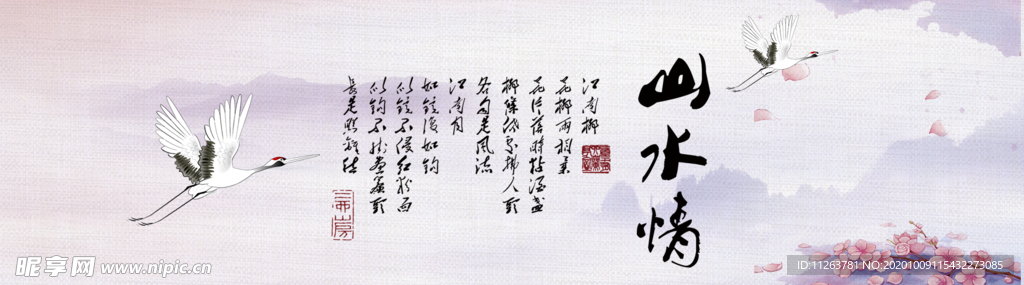 山水情
江南柳
花柳兩相柔
花片落時粘酒盞
柳條低處拂人頭
各自是風流
江南月
如鏡復如鈎
似鏡不侵紅粉面
似鈎不挂畫簾頭
長是照離愁
昵享网 www.nipic.cn
ID:11263781 NO:20201009115432273085